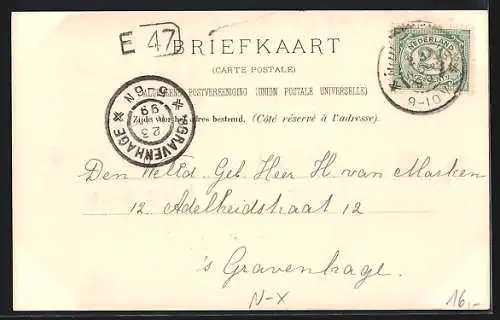 E 47
BRIEFKAART
(CARTE POSTALE)
ALGEMEENE POSTVEREENIGING (UNION POSTALE UNIVERSELLE)
Zijde voor het adres bestemd. (Côté réservé à l'adresse).
NEDERLAND
2½
8-10
'S GRAVENHAGE
23
99
Den WelEd. Geb. Heer H. van Marken
12 Adelheidstraat 12
's Gravenhage.
N-X
16,-